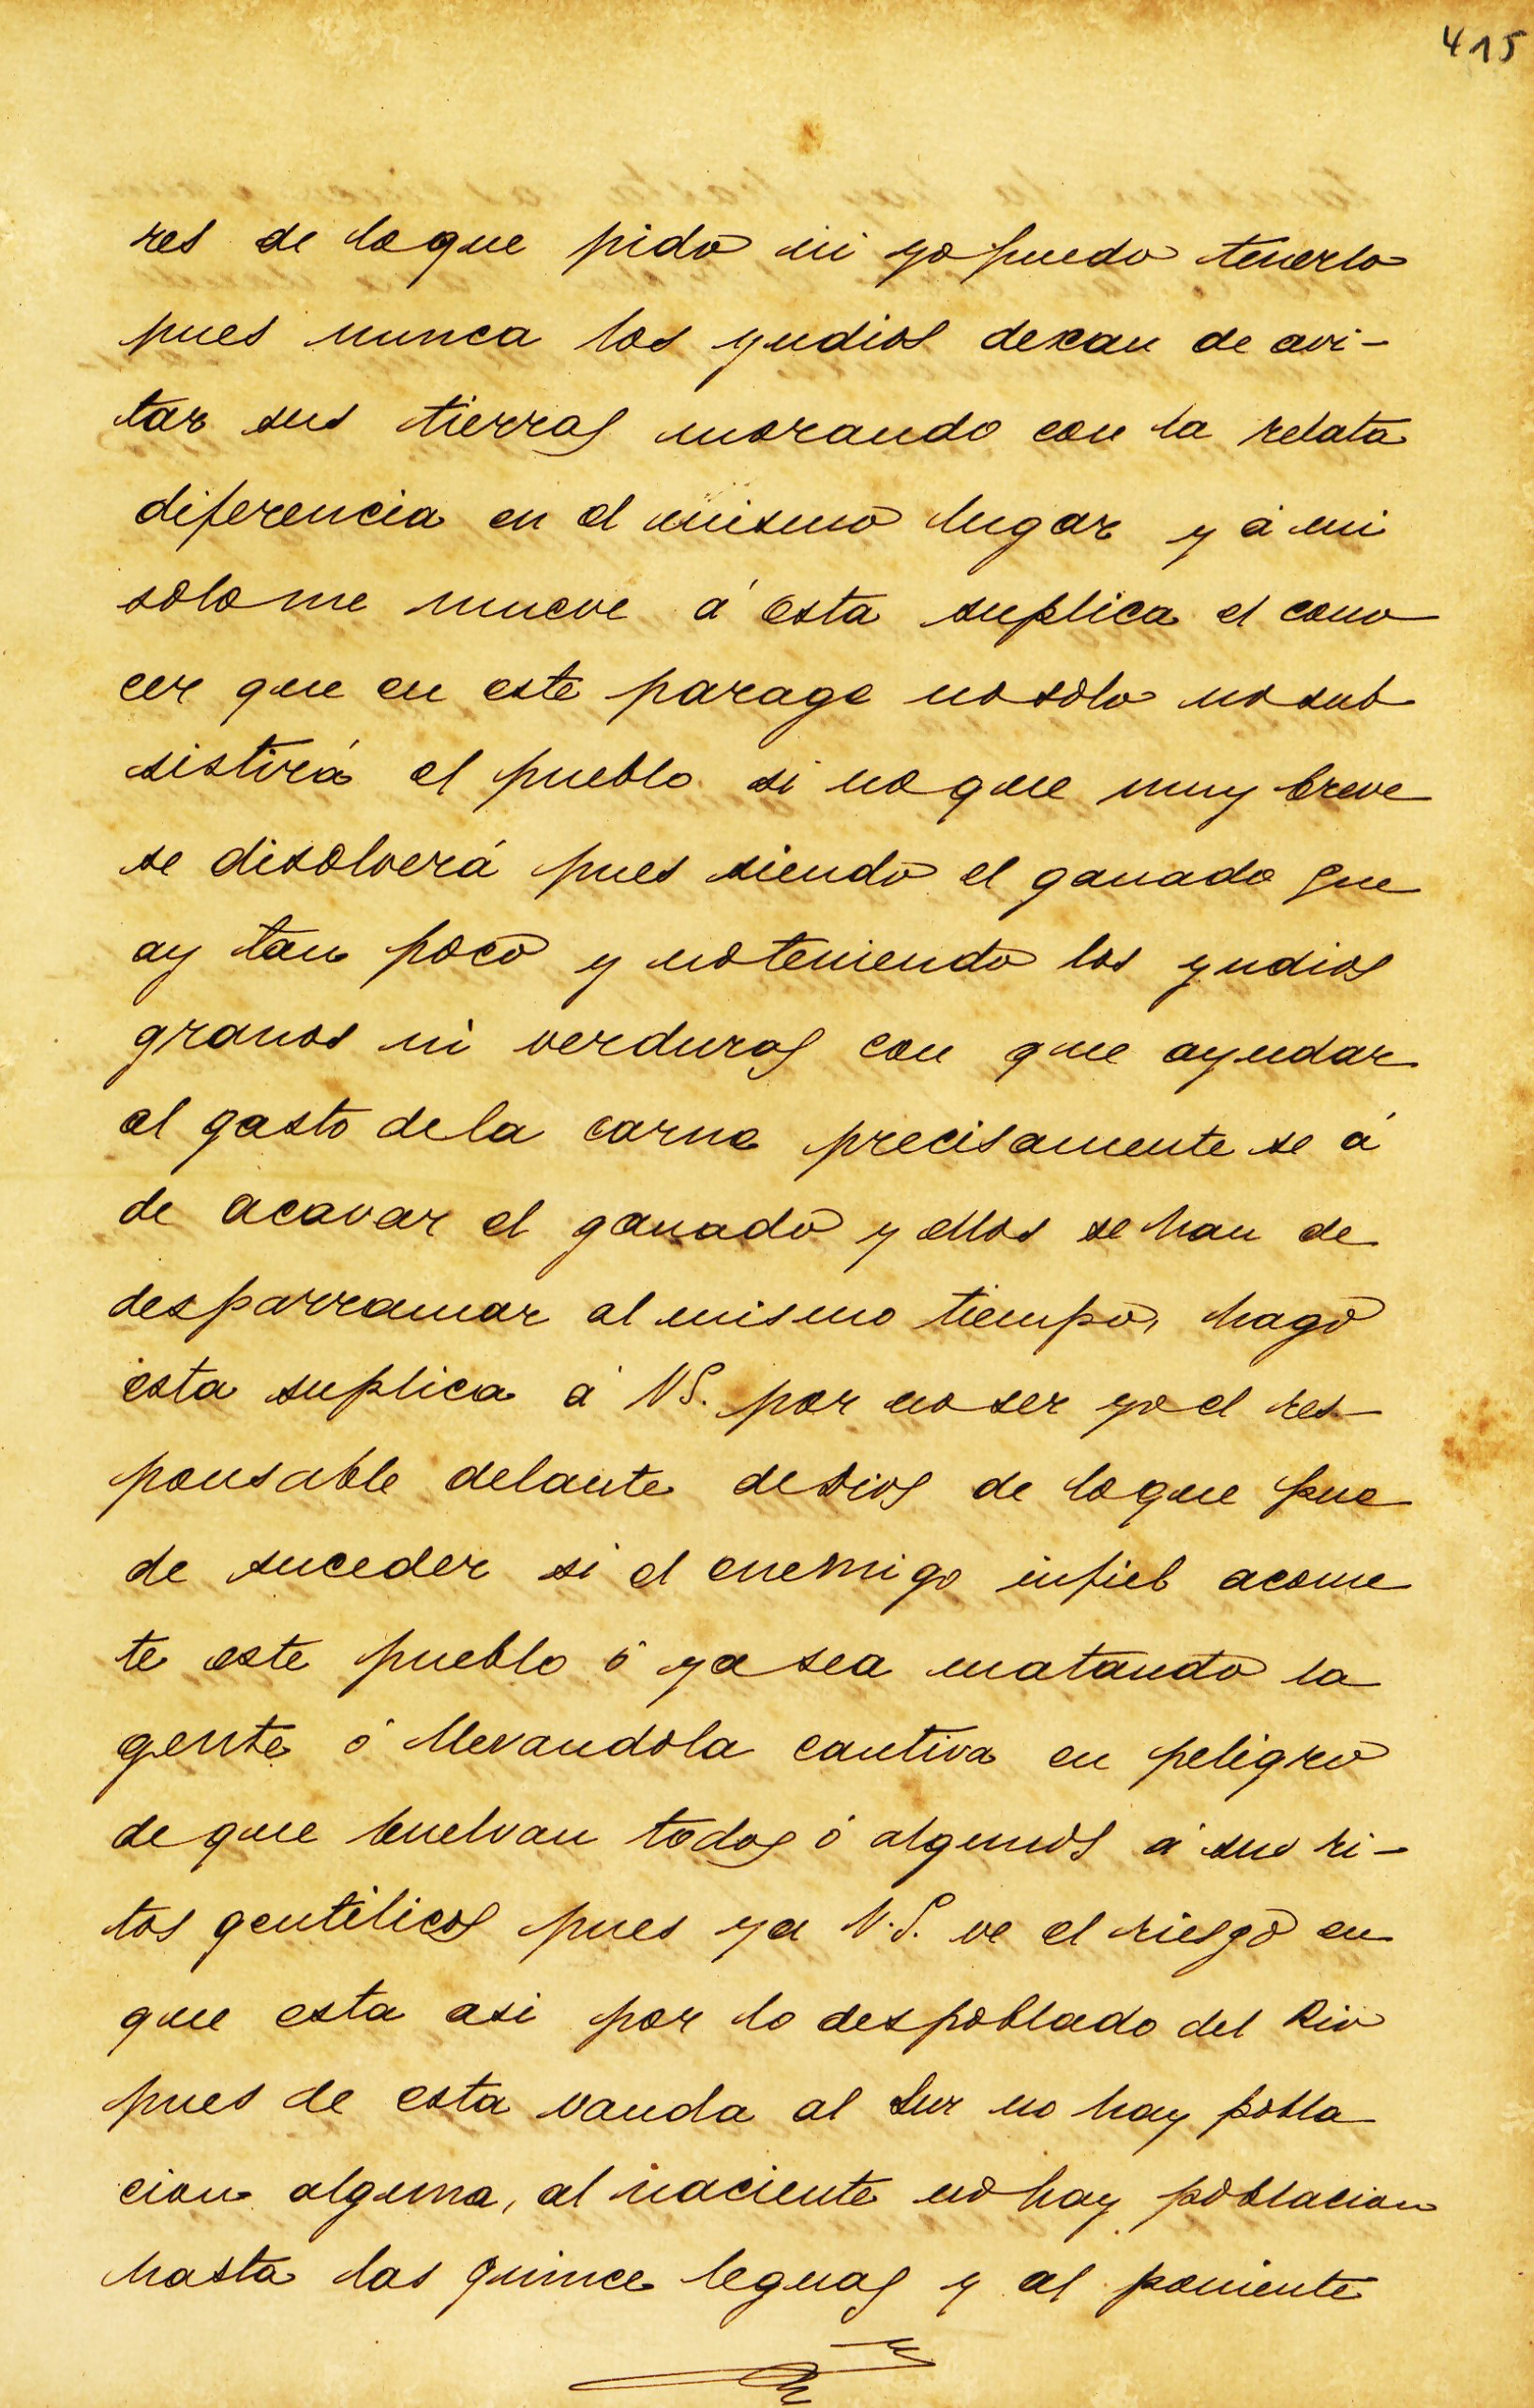 415
res de loque pido ni yo puedo tenerlo
pues nunca los yudios dexan de avi-
tar sus tierras morando con la relata
diferencia en el mismo lugar y á mi
solo me mueve á esta suplica el cono
cer que en este parage no solo no sub
sistirá el pueblo si no que muy breve
se disolverá pues siendo el ganado que
ay tan poco y no teniendo los yudios
granos ni verduras con que ayudar
al gasto de la carne precisamente se á
de acavar el ganado y ellos se han de
desparramar al mismo tiempo, hago
esta suplica á VS. por no ser yo el res-
ponsable delante de Dios de loque pue
de suceder si el enemigo infiel acome
te este pueblo ó ya sea matando la
gente ó llevandola cautiva en peligro
de que buelvan todos ó algunos á sus ri-
tos gentilicos pues ya V.S. ve el riesgo en
que esta asi por lo despoblado del Rio
pues de esta vanda al Sur no hay pobla
cion alguna, al naciente no hay poblacion
hasta las quince leguas y al poniente